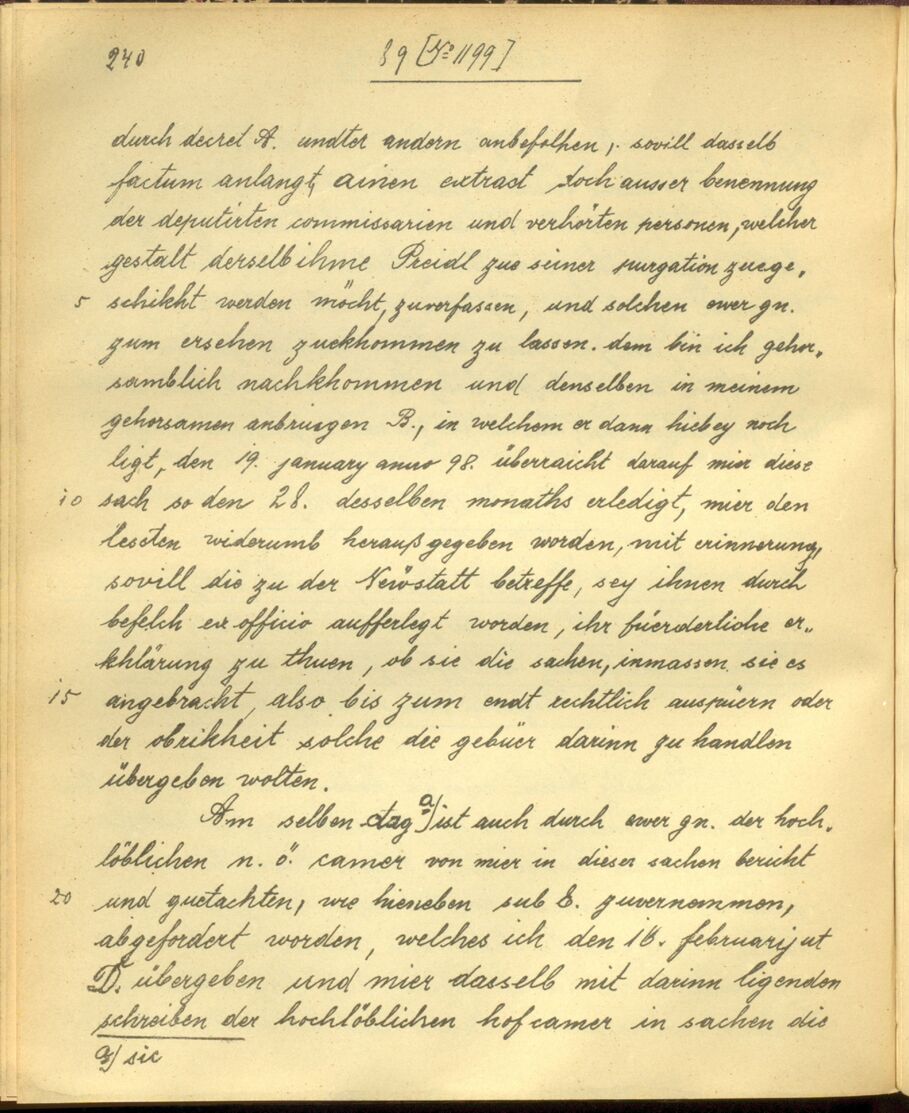 240
89 [No 1199]
durch decret A. undter andern anbefolhen, sovill dasselb
factum anlangt, ainen extract doch ausser benennung
der deputirten commissarien und verhörten personen, welcher
gestalt derselb ihme Preidl zue seiner purgation zuege„
5 schikht werden möcht, zuverfassen, und solchen ewer gn.
zum ersehen zuekhommen zu lassen. dem bin ich gehor„
samblich nachkhommen und denselben in meinem
gehorsamen anbringen B., in welchem er dann hiebey noch
ligt, den 19. january anno 98. überraicht darauf mier diese
10 sach so den 28. desselben monaths erledigt, mier den
lessten widerumb herauß gegeben worden, mit erinnerung,
sovill die zu der Newstatt betreffe, sey ihnen durch
befelch ex officio aufferlegt worden, ihr füerderliche er„
khlärung zu thuen, ob sie die sachen, inmassen sie es
15 angebracht, also bis zum endt rechtlich auspüern oder
der obrikheit solche die gebüer darinn zu handlen
übergeben wolten.
Am selben dag a) ist auch durch ewer gn. der hoch„
löblichen n. ö. camer von mier in dieser sachen bericht
20 und guetachten, wie hieneben sub C. zuvernemmen,
abgefordert worden, welches ich den 18. februarij ut
D. übergeben und mier dasselb mit darinn ligenden
schreiben der hochlöblichen hofcamer in sachen die
a) sic